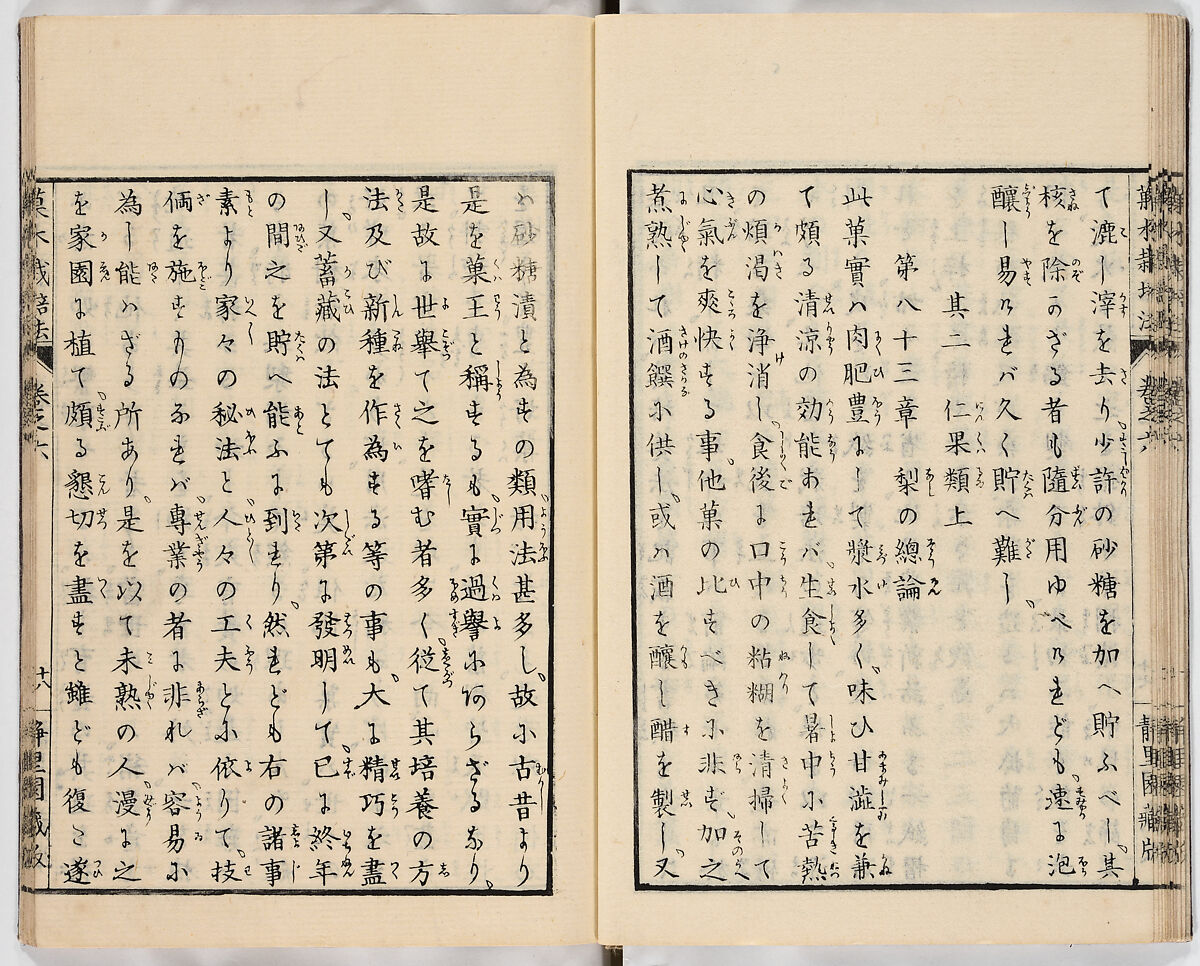 て漉し滓を去り少許の砂糖を加へ貯ふべし、其
核を除かざる者も隨分用ゆべけれども、速に泡
釀し易ければ久く貯へ難し、
其二 仁果類上
第八十三章 梨の總論
此菓實は肉肥豊にして漿水多く、味ひ甘澁を兼
て頗る清涼の効能あれバ、生食して暑中に苦熱
の煩渇を浄消し、食後に口中の粘糊を清掃して
心氣を爽快する事、他菓の比すべきに非ず、加之
煮熟して酒饌に供し、或ハ酒を釀し醋を製し、又
ハ砂糖漬と為すの類、用法甚多し、故に古昔より
是を菓王と稱するも、實に過擧にあらざるなり、
是故に世擧て之を嗜む者多く、従て其培養の方
法及び新種を作為する等の事も、大に精巧を盡
し、又蓄藏の法とても次第に發明して、已に終年
の間之を貯へ能ふに到れり、然れども右の諸事
素より家々の秘法と、人々の工夫とに依りて、技
倆を施すものなれバ、專業の者に非れバ容易に
為し能ハざる所あり、是を以て未熟の人、漫に之
を家園に植て頗る懇切を盡すと雖ども復た遂
菓木栽培法 卷之六
十八 静里園藏版